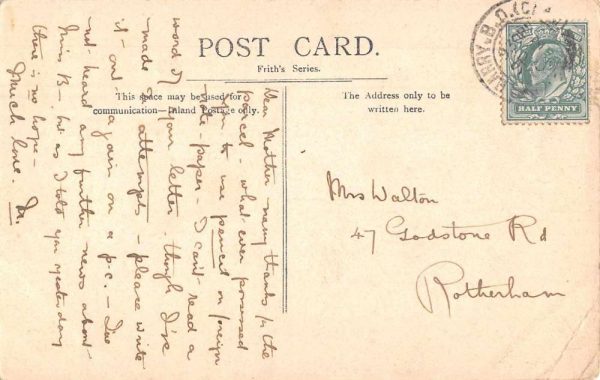 POST CARD.
Frith's Series.
This space may be used for
communication—Inland Postage only.
The Address only to be
written here.
HALF PENNY
BARRY-B.O.
Dear Mother many thanks for the
parcel - what ever possessed
you to use pencil on foreign
note-paper - I can't read a
word of your letter - though I've
made attempts - please write
it out again on a p.c. - I've
not heard any further news about
Miss B - but as I told you yesterday
there is no hope -
Much love. M.
Mrs Walton
47 Godstone Rd
Rotherham